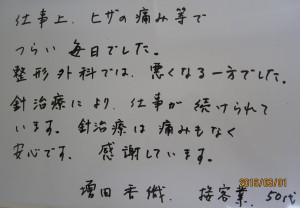 仕事上、ヒザの痛み等で
つらい毎日でした。
整形外科では、悪くなる一方でした。
針治療により、仕事が続けられて
います。針治療は痛みもなく
安心です。感謝しています。
増田香織. 接客業. 50代
2016/03/01